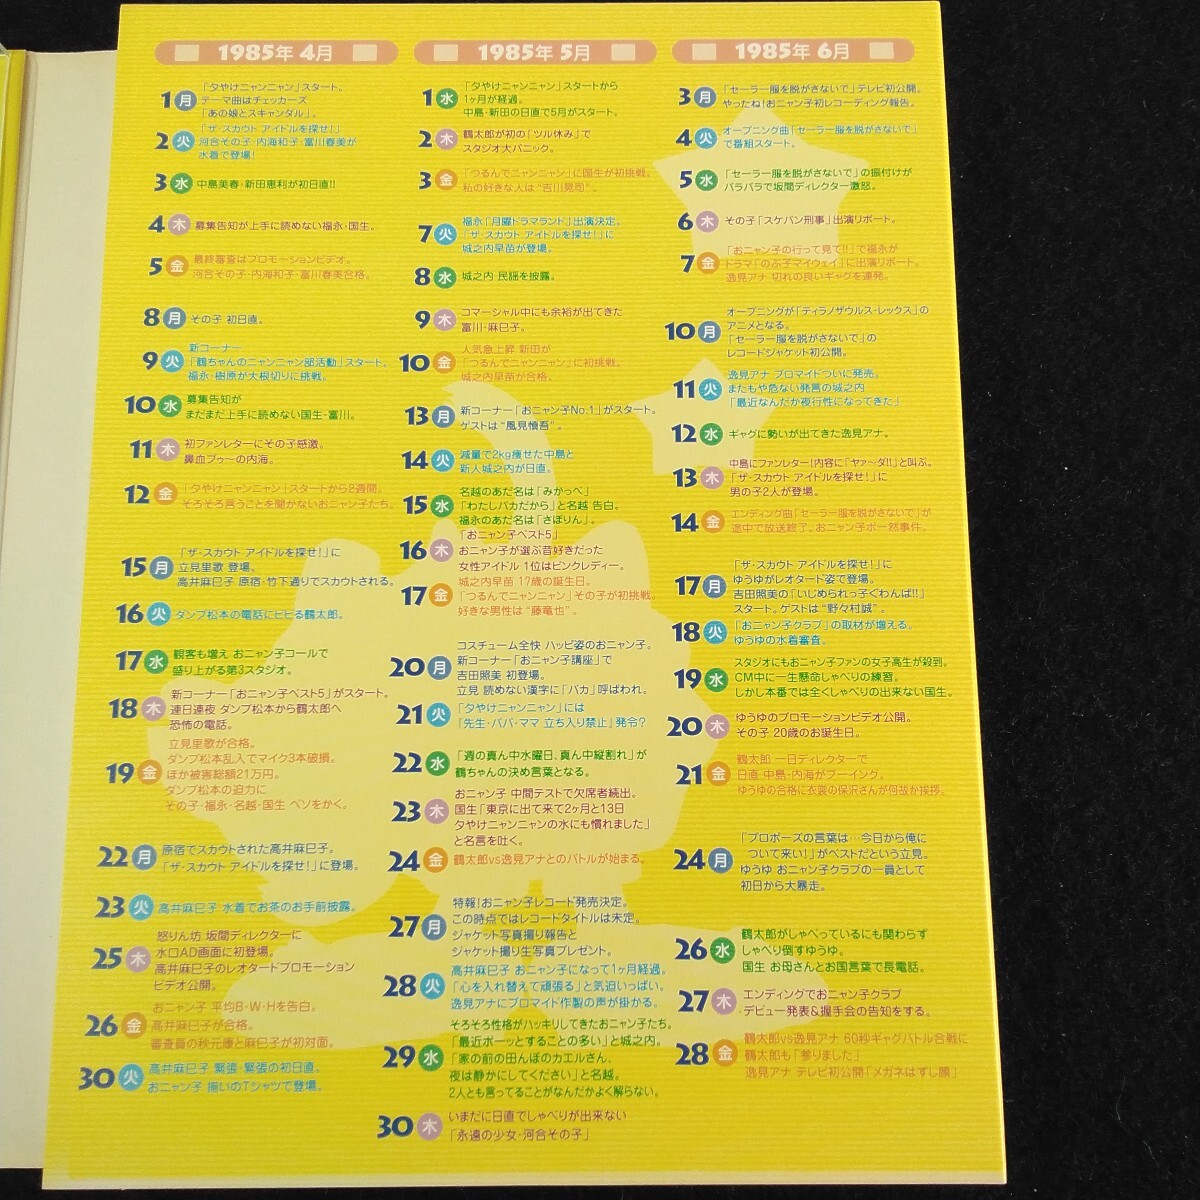 1985年 4月
1 月 「夕やけニャンニャン」スタート。
テーマ曲はチェッカーズ
「あの娘とスキャンダル」。
2 火 「ザ・スカウト アイドルを探せ!」
河合その子・内海和子・富川春美が
水着で登場!
3 水 中島美春・新田恵利が初日直!!
4 木 募集告知が上手に読めない福永・国生。
5 金 最終審査はプロモーションビデオ。
河合その子・内海和子・富川春美合格。
8 月 その子 初日直。
9 火 新コーナー
「鶴ちゃんのニャンニャン部活動」スタート。
福永・樹原が大根切りに挑戦。
10 水 募集告知が
まだまだ上手に読めない国生・富川。
11 木 初ファンレターにその子感激。
鼻血ブゥ〜の内海。
12 金 「夕やけニャンニャン」スタートから2週間。
そろそろ言うことを聞かないおニャン子たち。
15 月 「ザ・スカウト アイドルを探せ!」に
立見里歌 登場。
高井麻巳子 原宿・竹下通りでスカウトされる。
16 火 ダンプ松本の電話にビビる鶴太郎。
17 水 観客も増え おニャン子コールで
盛り上がる第3スタジオ。
18 木 新コーナー「おニャン子ベスト5」がスタート。
連日連夜 ダンプ松本から鶴太郎へ
恐怖の電話。
19 金 立見里歌が合格。
ダンプ松本乱入でマイク3本破損。
ほか被害総額21万円。
ダンプ松本の迫力に
その子・福永・名越・国生 ベソをかく。
22 月 原宿でスカウトされた高井麻巳子。
「ザ・スカウト アイドルを探せ!」に登場。
23 火 高井麻巳子 水着でお茶のお手前披露。
25 木 怒りん坊 坂間ディレクターに
水口AD画面に初登場。
高井麻巳子のレオタードプロモーション
ビデオ公開。
26 金 おニャン子 平均B・W・Hを告白。
高井麻巳子が合格。
審査員の秋元康と麻巳子が初対面。
30 火 高井麻巳子 緊張・緊張の初日直。
おニャン子 揃いのTシャツで登場。
1985年 5月
1 水 「夕やけニャンニャン」スタートから
1ヶ月が経過。
中島・新田の日直で5月がスタート。
2 木 鶴太郎が初の「ツル休み」で
スタジオ大パニック。
3 金 「つるんでニャンニャン」に国生が初挑戦。
私の好きな人は“吉川晃司”。
7 火 福永「月曜ドラマランド」出演決定。
「ザ・スカウト アイドルを探せ!」に
城之内早苗が登場。
8 水 城之内 民謡を披露。
9 木 コマーシャル中にも余裕が出てきた
富川・麻巳子。
10 金 人気急上昇 新田が
「つるんでニャンニャン」に初挑戦。
城之内早苗が合格。
13 月 新コーナー「おニャン子No.1」がスタート。
ゲストは“風見慎吾”。
14 火 減量で2kg痩せた中島と
新人城之内が日直。
15 水 名越のあだ名は「みかっぺ」
「わたしバカだから」と名越 告白。
福永のあだ名は「さぼりん」。
16 木 「おニャン子ベスト5」
おニャン子が選ぶ昔好きだった
女性アイドル 1位はピンクレディー。
17 金 城之内早苗 17歳の誕生日。
「つるんでニャンニャン」その子が初挑戦。
好きな男性は“藤竜也”。
20 月 コスチューム全快 ハッピ姿のおニャン子。
新コーナー「おニャン子講座」で
吉田照美 初登場。
立見 読めない漢字に「バカ」呼ばわれ。
21 火 「夕やけニャンニャン」には
「先生・パパ・ママ 立ち入り禁止」発令?
22 水 「週の真ん中水曜日、真ん中縦割れ」が
鶴ちゃんの決め言葉となる。
23 木 おニャン子 中間テストで欠席者続出。
国生「東京に出て来て2ヶ月と13日
夕やけニャンニャンの水にも慣れました」
と名言を吐く。
24 金 鶴太郎vs逸見アナとのバトルが始まる。
27 月 特報!おニャン子レコード発売決定。
この時点ではレコードタイトルは未定。
ジャケット写真撮り報告と
ジャケット撮り生写真プレゼント。
28 火 高井麻巳子 おニャン子になって1ヶ月経過。
「心を入れ替えて頑張る」と気迫いっぱい。
逸見アナにブロマイド作製の声が掛かる。
29 水 そろそろ性格がハッキリしてきたおニャン子たち。
「最近ボーッとすることの多い」と城之内。
「家の前の田んぼのカエルさん、
夜は静かにしてください」と名越。
2人とも言ってることがなんだかよく解らない。
30 木 いまだに日直でしゃべりが出来ない
「永遠の少女・河合その子」
1985年 6月
3 月 「セーラー服を脱がさないで」テレビ初公開。
やったね!おニャン子初レコーディング報告。
4 火 オープニング曲「セーラー服を脱がさないで」
で番組スタート。
5 水 「セーラー服を脱がさないで」の振付けが
バラバラで坂間ディレクター激怒。
6 木 その子「スケバン刑事」出演リポート。
7 金 「おニャン子の行って見て!!」で福永が
ドラマ「のぶ子マイウェイ」に出演リポート。
逸見アナ 切れの良いギャグを連発。
10 月 オープニングが「ティラノザウルス・レックス」の
アニメとなる。
「セーラー服を脱がさないで」の
レコードジャケット初公開。
11 火 逸見アナ ブロマイドついに発売。
またもや危ない発言の城之内
「最近なんだか夜行性になってきた」
12 水 ギャグに勢いが出てきた逸見アナ。
13 木 中島にファンレター!内容に「ヤァ〜ダ!!」と叫ぶ。
「ザ・スカウト アイドルを探せ!」に
男の子2人が登場。
14 金 エンディング曲「セーラー服を脱がさないで」が
途中で放送終了。おニャン子ボー然事件。
17 月 「ザ・スカウト アイドルを探せ!」に
ゆうゆがレオタード姿で登場。
吉田照美の「いじめられっ子ぐわんば!!」
スタート。ゲストは“野々村誠”。
18 火 「おニャン子クラブ」の取材が増える。
ゆうゆの水着審査。
19 水 スタジオにもおニャン子ファンの女子高生が殺到。
CM中に一生懸命しゃべりの練習。
しかし本番では全くしゃべりの出来ない国生。
20 木 ゆうゆのプロモーションビデオ公開。
その子 20歳のお誕生日。
21 金 鶴太郎 一日ディレクターで
日直・中島・内海がブーイング。
ゆうゆの合格に衣裳の保沢さんが何故か挨拶。
24 月 「プロポーズの言葉は…今日から俺に
ついて来い!」がベストだという立見。
ゆうゆ おニャン子クラブの一員として
初日から大暴走。
26 水 鶴太郎がしゃべっているにも関わらず
しゃべり倒すゆうゆ。
国生 お母さんとお国言葉で長電話。
27 木 エンディングでおニャン子クラブ
デビュー発表&握手会の告知をする。
28 金 鶴太郎vs逸見アナ 60秒ギャグバトル合戦に
鶴太郎も「参りました」
逸見アナ テレビ初公開「メガネはずし顔」